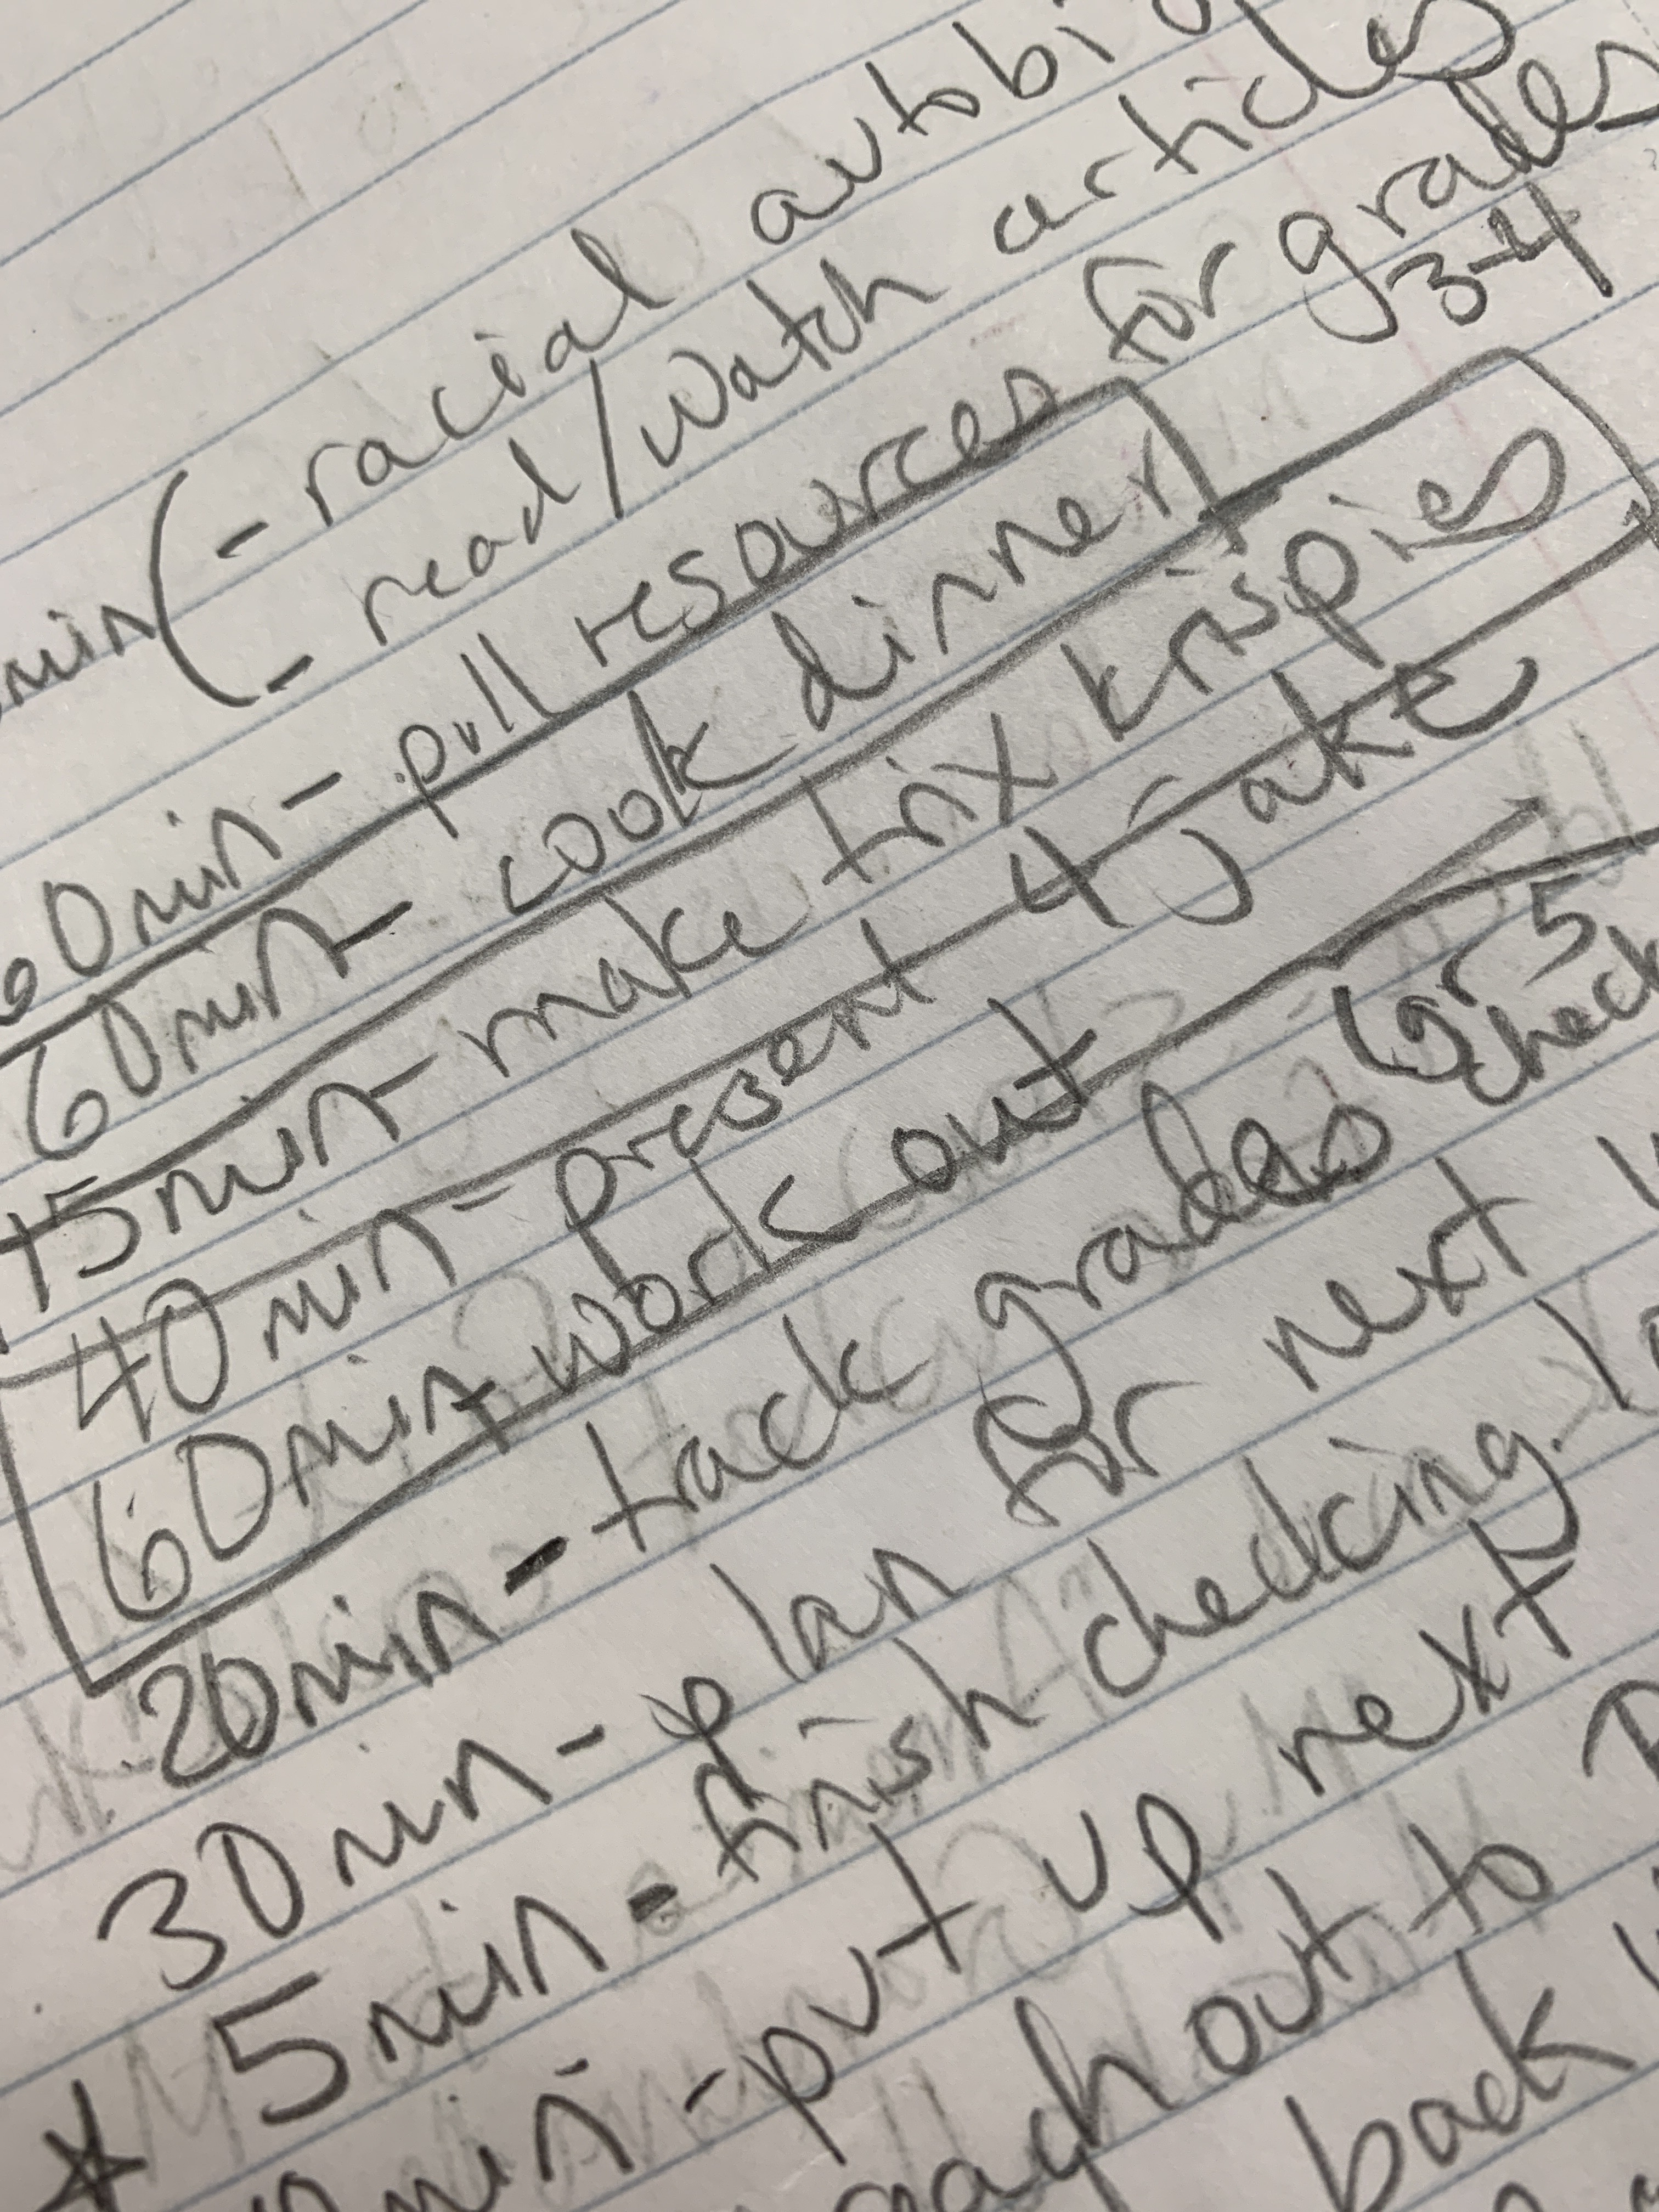 - racial autobio
min ( - read/watch articles
60min - pull resources for grades
3-4
60min - cook dinner
15min - make trix krispies
40min - present 4 jake
60min work out
20min - track grades (gr 5
check
30min - plan for next
* 5min - finish checking
min - put up next
out to
back